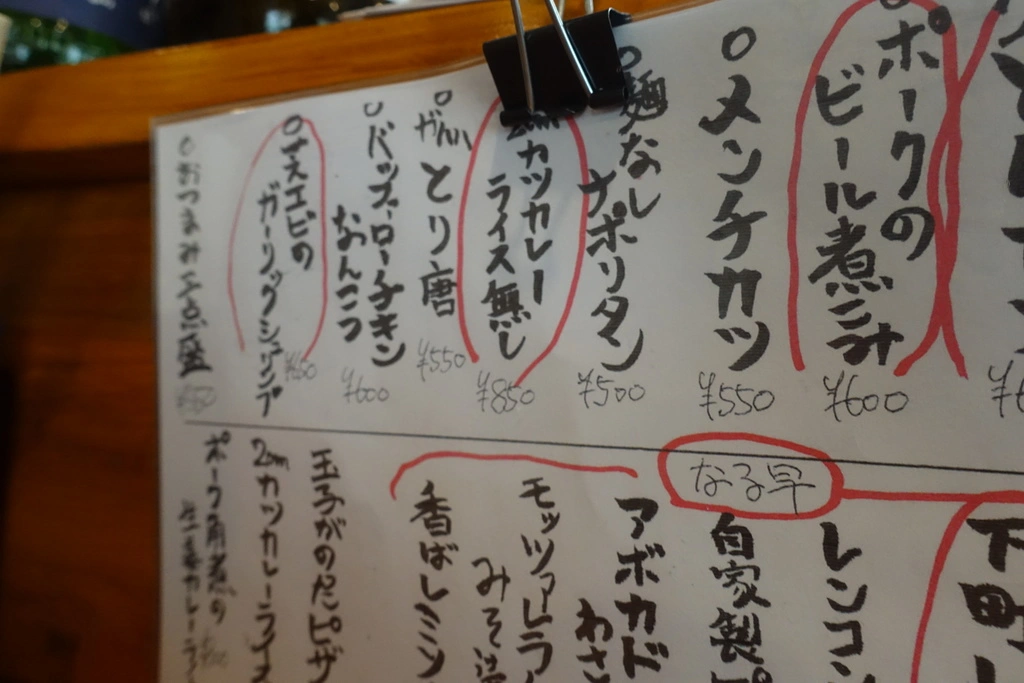 ポークの
ビール煮こみ
¥600
メンチカツ
¥550
麺なし
ナポリタン
¥500
カツカレー
ライス無し
¥850
とり唐
¥550
バッファローチキン
なんこつ
¥600
ナスエビの
ガーリックシュリンプ
おつまみ三点盛
下町
なる早
レンコン
自家製ピ
アボカド
わさ
モッツァレラ
みそ漬
香ばしミミン
玉子がのたピザ
2cmカツカレーライス
ポーク角煮の